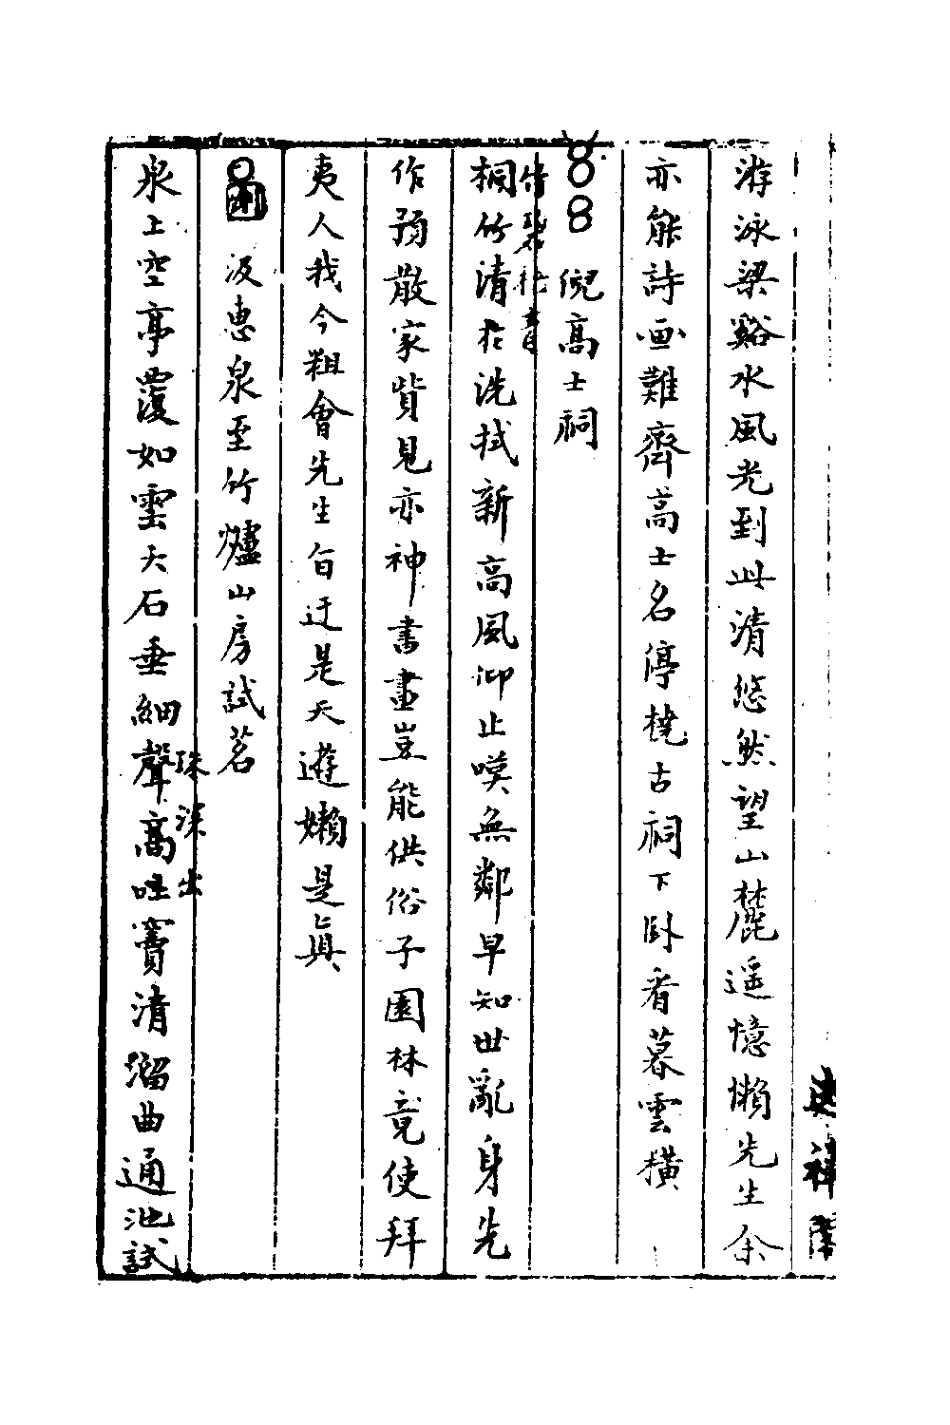 游泳梁谿水風光到此清悠然望山麓遥憶懶先生余
亦能詩画難齊高士名停橈古祠下卧看暮雲横
倪高士祠
桐竹清於洗拭新高風仰止嘆無鄰早知世亂身先
作預散家貲見亦神書畫豈能供俗子園林竟使拜
夷人我今粗會先生旨迂是天遊嬾是眞
汲惠泉至竹爐山房試茗
泉上空亭覆如雲天石垂細聲高哇竇清溜曲通池試
珠深出